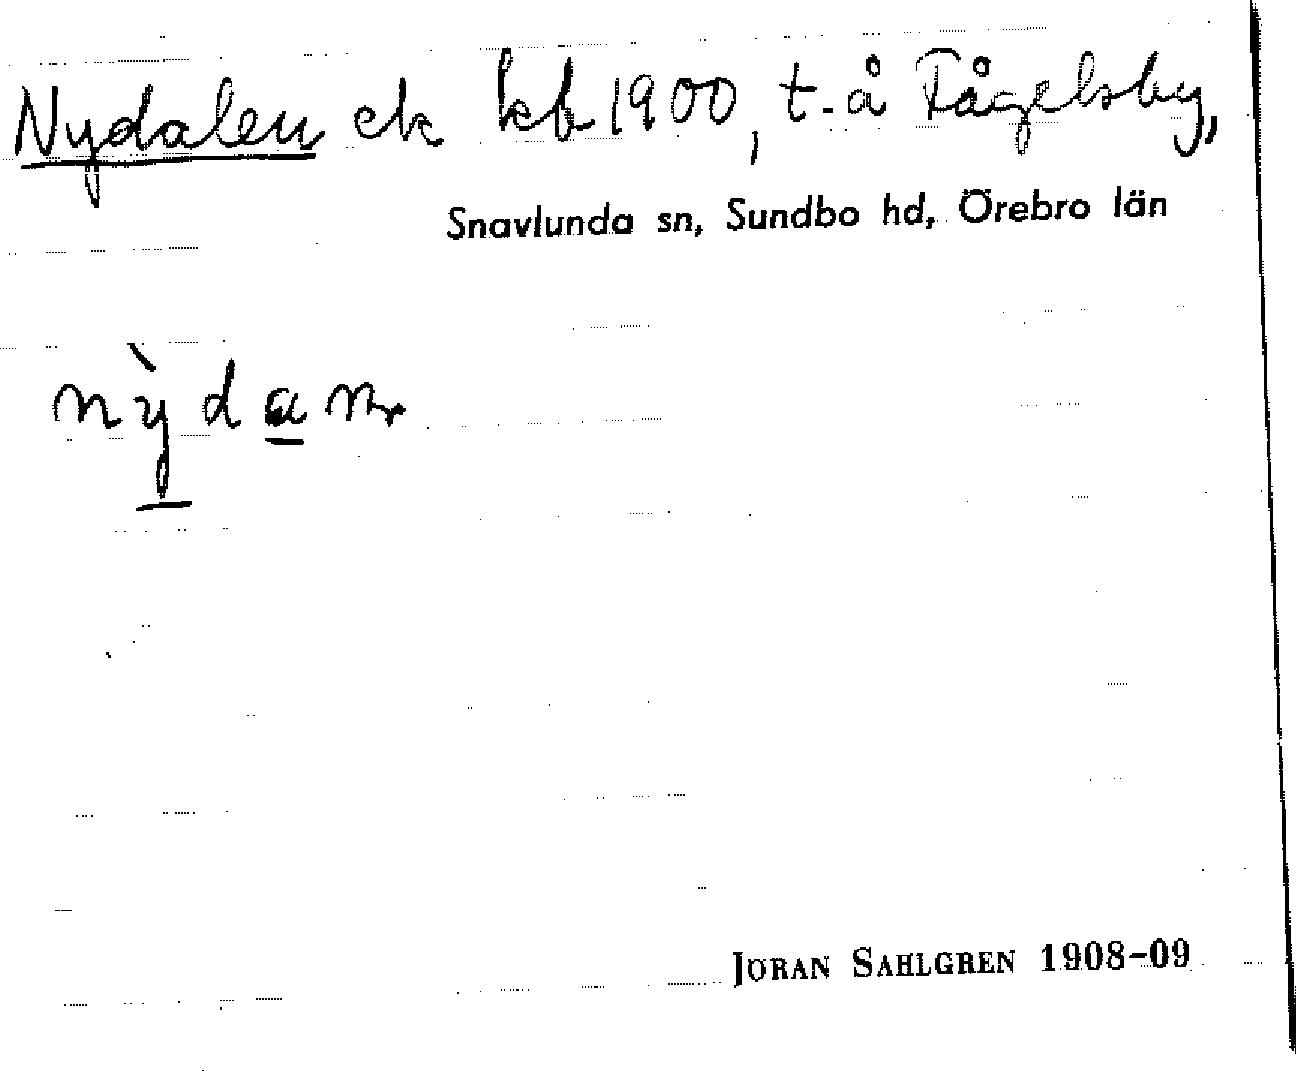 Nydalen ek kb 1900, t. å Fågelsby,
Snavlunda sn, Sundbo hd, Örebro län
nỳdan
JÖRAN SAHLGREN 1908–09